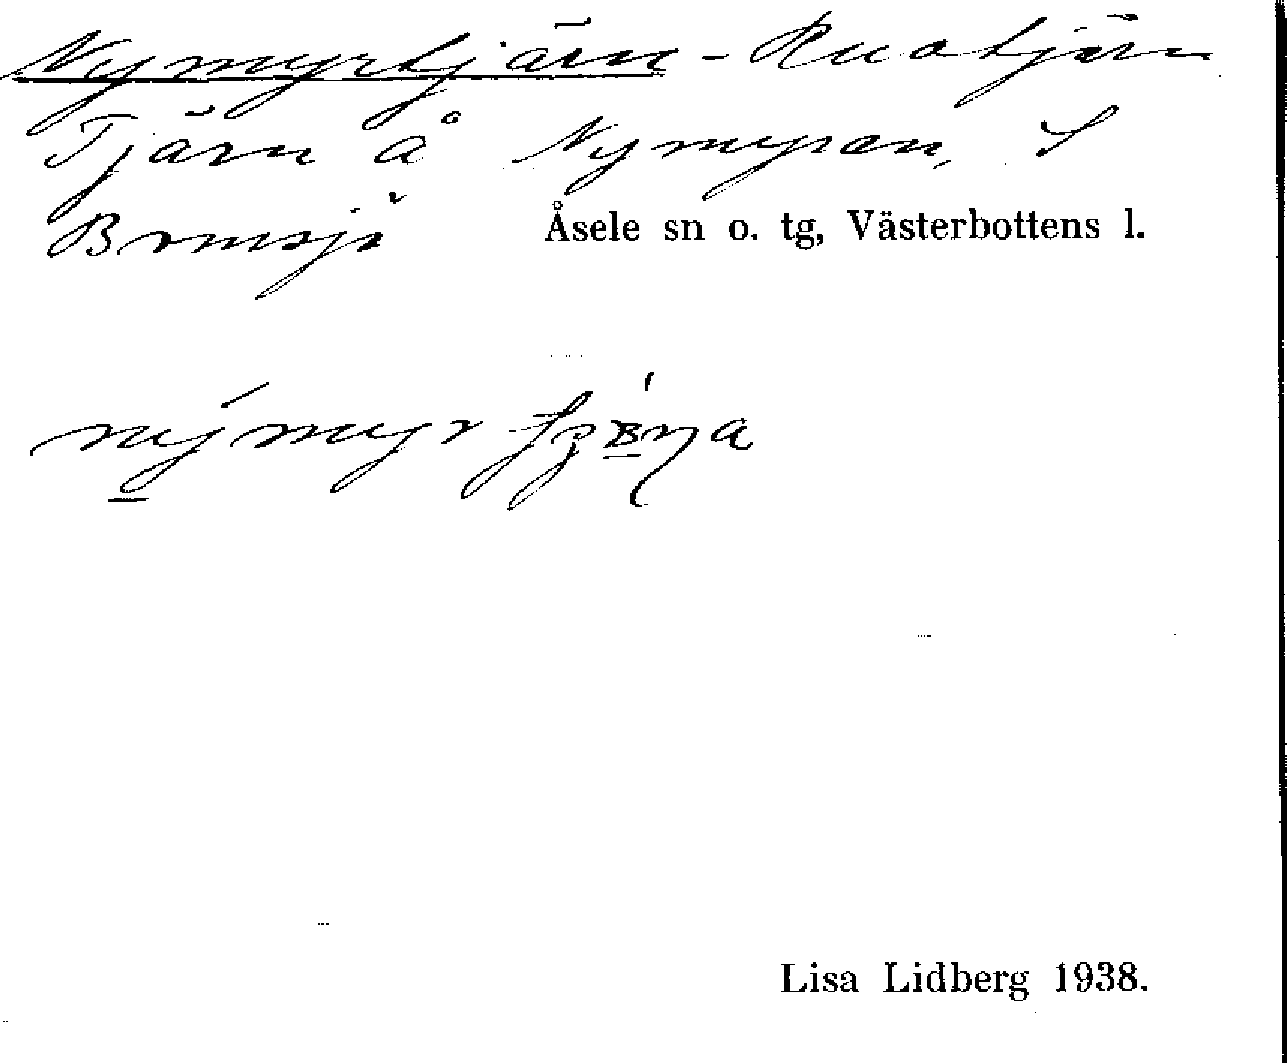 Nymyrtjärn - Ruotjärn
Tjärn å Nymyran, S
Bomsjö Åsele sn o. tg, Västerbottens l.
Lisa Lidberg 1938.